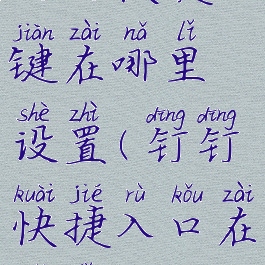 jiàn zài nǎ lǐ
键在哪里
shè zhì dīng dīng
设置(钉钉
kuài jié rù kǒu zài
快捷入口在